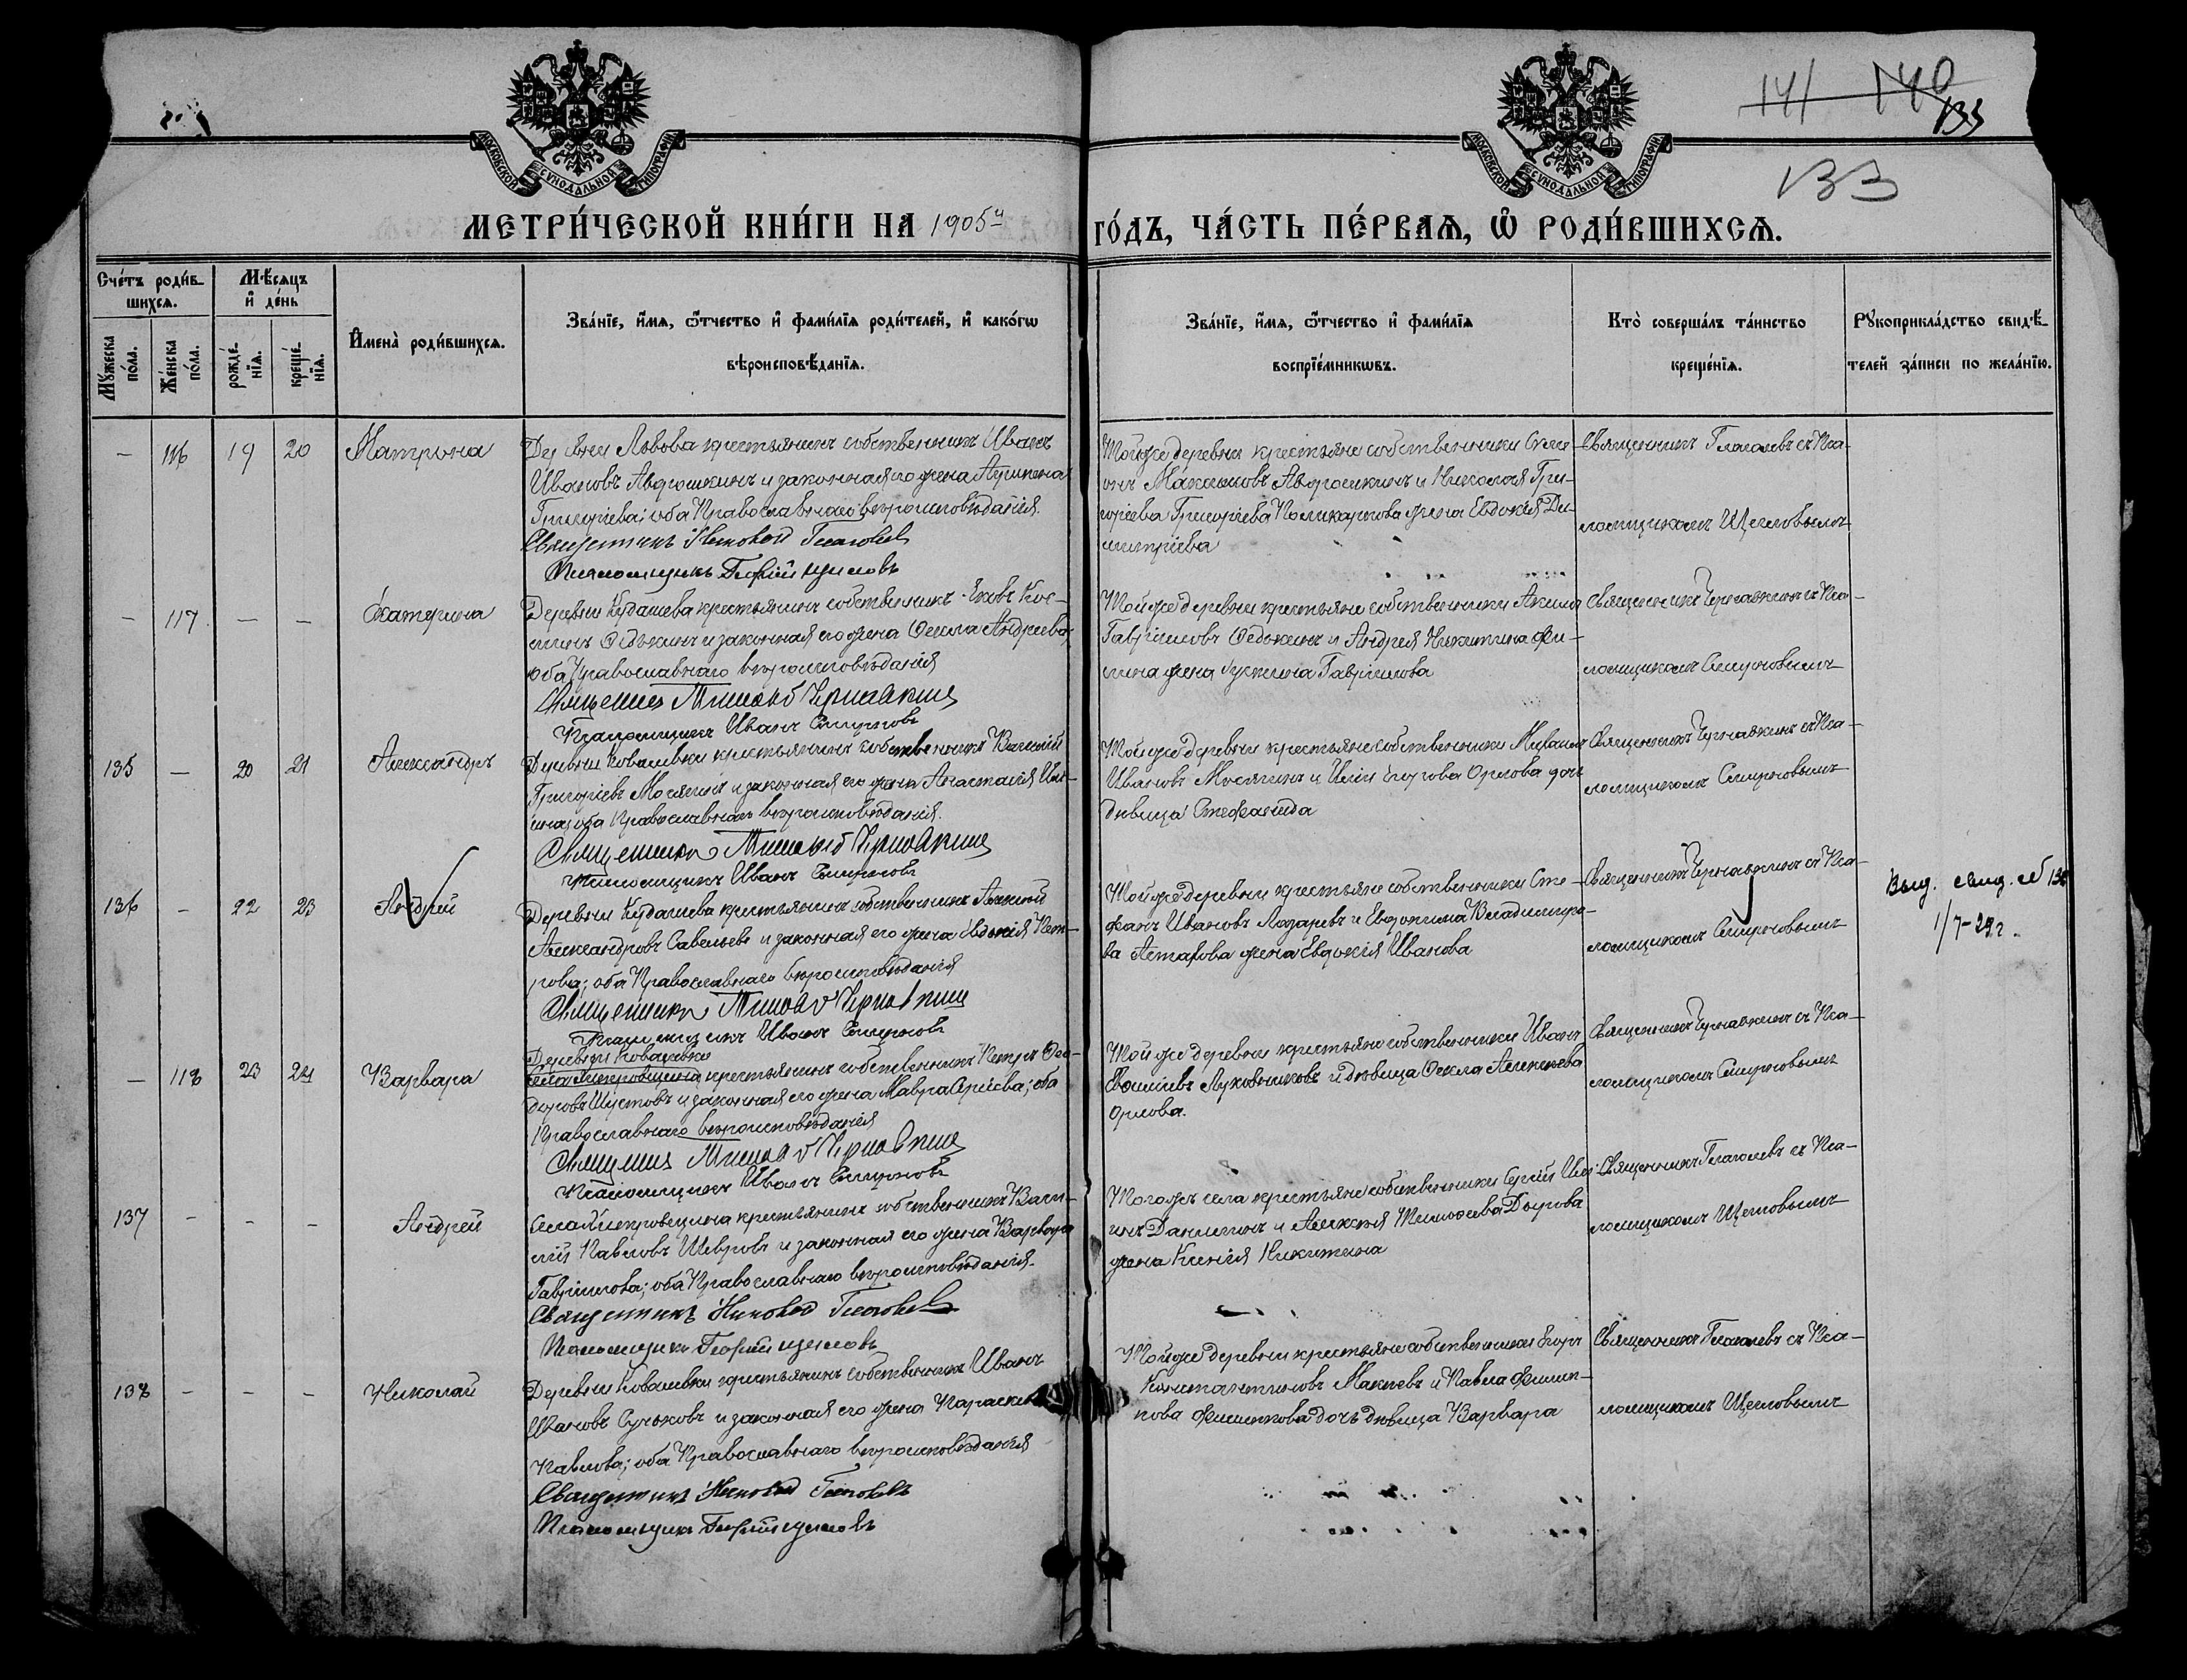 141 140
133
133
МОСКОВСКОЙ СУНОДАЛЬНОЙ ТИПОГРАФІИ
МОСКОВСКОЙ СУНОДАЛЬНОЙ ТИПОГРАФІИ
МЕТРИ́ЧЕСКОЙ КНИ́ГИ НА 1905й ГО́ДЪ, ЧА́СТЬ ПЕ́РВАѦ, Ѡ҆ РОДИ́ВШИХСѦ.
Сче́тъ роди́в-
шихсѧ.
Мꙋ́жеска по́ла.
Же́нска по́ла.
Мѣ́сѧцъ
и҆ де́нь
рожде́-
нїѧ.
креще́-
нїѧ.
И҆мена̀ роди́вшихсѧ.
Зва́нїе, и҆́мѧ, ѻ҆́тчество и҆ фами́лїѧ роди́телей, и҆ како́гѡ
вѣроисповѣ́данїѧ.
Зва́нїе, и҆́мѧ, ѻ҆́тчество и҆ фами́лїѧ
воспрїе́мникѡвъ.
Кто̀ соверша́лъ та́инство
креще́нїѧ.
Рꙋкоприкла́дство свидѣ́-
телей за́писи по жела́нїю.
– 116 19 20 Матрона
Деревни Львова крестьянинъ собственникъ Иванъ
Ивановъ Авдошкинъ и законная его жена Агрипена
Григоріева; оба Православнаго вѣроисповѣданія.
Священникъ Николай Глаголевъ
Псаломщикъ Георгій Щегловъ
Той же деревни крестьяне собственники
Максимовъ Авдошкинъ и Николая Гри-
горіева Поликарпова жена Евдокія Ди-
митріева
Священникъ Глаголевъ съ Пса-
ломщикомъ Щегловымъ
– 117 – – Екатерина
Деревни Кудашева крестьянинъ собственникъ Яковъ Кос-
минъ Ѳедькинъ и законная его жена Ѳекла Андреева;
оба Православнаго вѣроисповѣданія
Священникъ Михаилъ Чернавкинъ
Псаломщикъ Иванъ Смирновъ
Той же деревни крестьяне собственники Акимъ
Гавриловъ Ѳедькинъ и Андрея Никитина Фи-
лина жена Гавриилова
Священникъ Чернавкинъ съ Пса-
ломщикомъ Смирновымъ
135 – 20 21 Александръ
Деревни Ковалевки крестьянинъ собственникъ Василій
Григорьевъ Мосягинъ и законная его жена Анастасія Иль-
ина; оба Православнаго вѣроисповѣданія.
Священникъ Михаилъ Чернавкинъ
Псаломщикъ Иванъ Смирновъ
Той же деревни крестьяне собственники Михаилъ
Ивановъ Мосягинъ и Иліи Егорова Орлова дочь
дѣвица Стефанида
Священникъ Чернавкинъ съ Пса-
ломщикомъ Смирновымъ
136 – 22 23 Андрей
Деревни Кудашева крестьянинъ собственникъ Алексѣй
Александровъ Савельевъ и законная его жена Евдокія Пет-
рова; оба Православнаго вѣроисповѣданія
Священникъ Михаилъ Чернавкинъ
Псаломщикъ Иванъ Смирновъ
Той же деревни крестьяне собственники Сте-
фанъ Ивановъ Лазаревъ и Евдокима Владимиро-
ва Астахова жена Евдокія Иванова
Священникъ Чернавкинъ съ Пса-
ломщикомъ Смирновымъ
Выд. свид. №136
1/7-29 г.
– 118 23 24 Варвара
Деревни Ковалевки
Села Дмитровщина крестьянинъ собственникъ Петръ Ѳео-
доровъ Шустовъ и законная его жена Мавра Сергіева; оба
Православнаго вѣроисповѣданія
Священникъ Михаилъ Чернавкинъ
Псаломщикъ Иванъ Смирновъ
Той же деревни крестьяне собственники Иванъ
Луковниковъ и дѣвица Ѳекла Алексѣева
Орлова.
Священникъ Чернавкинъ съ Пса-
ломщикомъ Смирновымъ
137 – – – Андрей
Села Дмитровщина крестьянинъ собственникъ Васи-
лій Павловъ Шавровъ и законная его жена Варвара
Гавриилова; оба Православнаго вѣроисповѣданія.
Священникъ Николай Глаголевъ
Псаломщикъ Георгій Щегловъ
Тогожъ села крестьяне собственники Сергій Иль-
инъ Данилинъ и Алексѣя Тимоѳеева Дворова
жена Ксенія Никитина
Священникъ Глаголевъ съ Пса-
ломщикомъ Щегловымъ
138 – – – Николай
Деревни Ковалевки крестьянинъ собственникъ Иванъ
Ивановъ Сучковъ и законная его жена Параскева
Павлова; оба Православнаго вѣроисповѣданія
Священникъ Николай Глаголевъ
Псаломщикъ Георгій Щегловъ
Той же деревни крестьяне собственники Егоръ
Константиновъ Макѣевъ и Павла Филип-
пова Филиппова дочь дѣвица Варвара
Священникъ Глаголевъ съ Пса-
ломщикомъ Щегловымъ